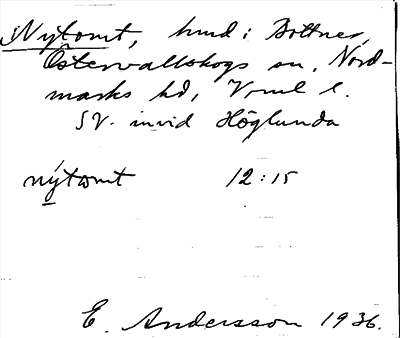 Nytomt, hmd i Bottner,
Östervallskogs sn, Nord-
marks hd, Vrml l.
SV. invid Höglunda
nýtomt 12:15
E. Andersson 1936.